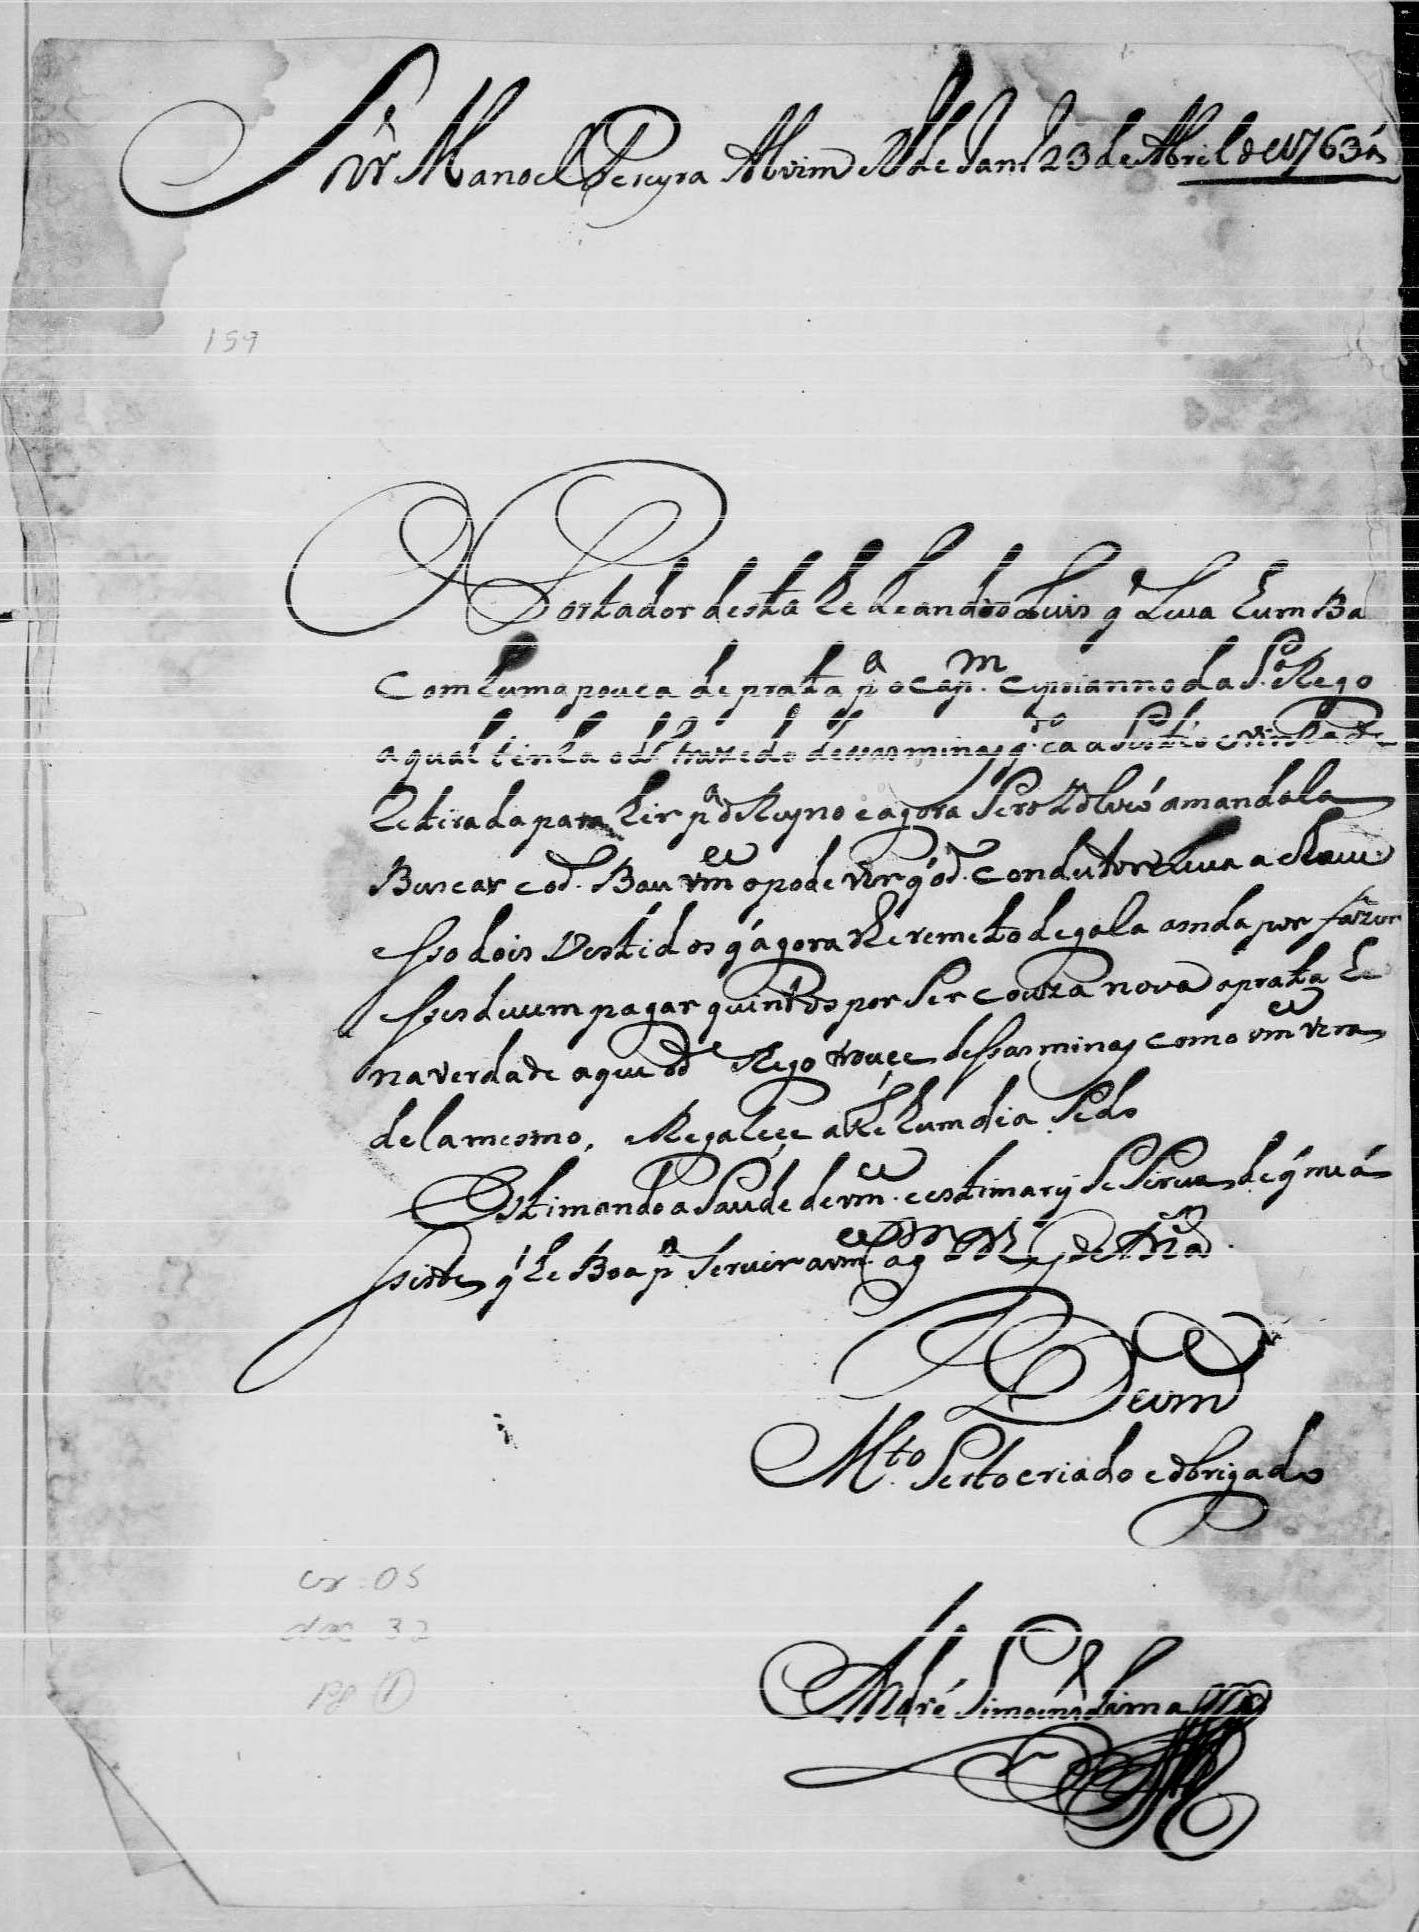 Snr Manoel Pereyra Alvim R.º de Janr.º 23 de Abril de 1763 a
159
O Portador desta he Leandro Luis q̃ Leva hum Ba
Com huma pouca de prata p.ª o cap.m Ciprianno da S.ª Rego
a qual tinha o d.º trazido dessas minas
he tirada para hir p.ª o Reyno e agora se rezolveo a mandala
Buscar e o d.º Bau vm.ce o pode ver q̃ o d.º Condutor leva a chave
e so dois Vestidos q̃ agora lhe remeto de gala ainda por fazer
esses devem pagar quintos por ser couza nova a prata he
na verdade a que o d.º Rego trouçe dessas minas como vm.ce vera
dela mesmo. Regaleçe athe hum dia sedo
Estimando a Saude de vm.ce e estimarey se sirva de q̃ me a
siste q̃ he Boa p.ª servir a vm.ce
De vm.ce
M.to Serto criado e obrigado
cx: 05
doc 32
pg 1
André Simoens Lima